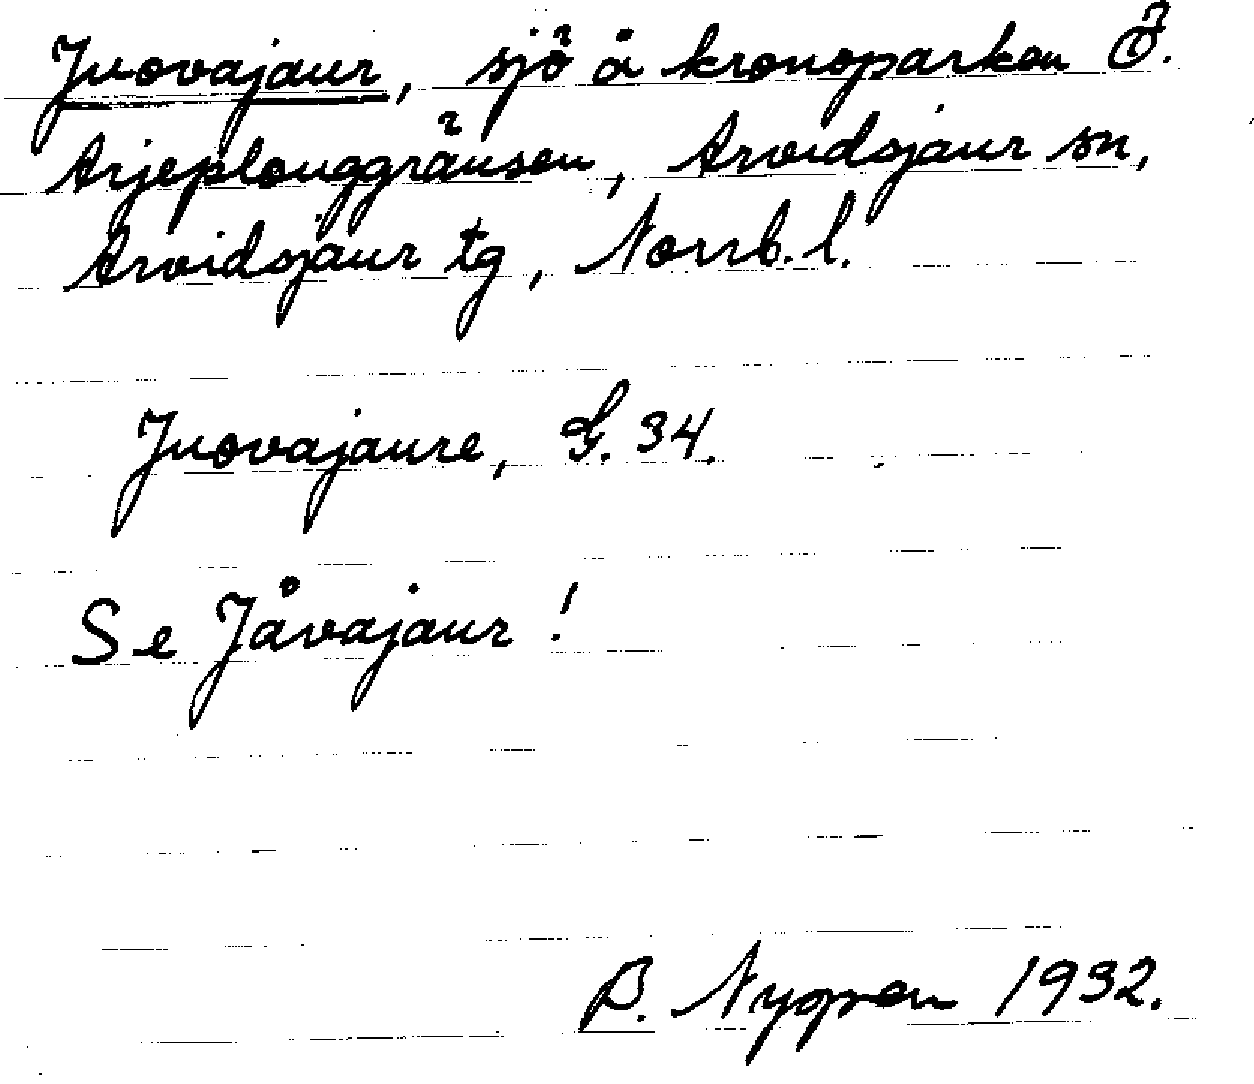 Juovajaur, sjö å kronoparken Ö.
Arjeplouggränsen, Arvidsjaur sn,
Arvidsjaur tg, Norrb. l.
Juovajaure, G. 34.
Se Jåvajaur!
B. Nygren 1932.